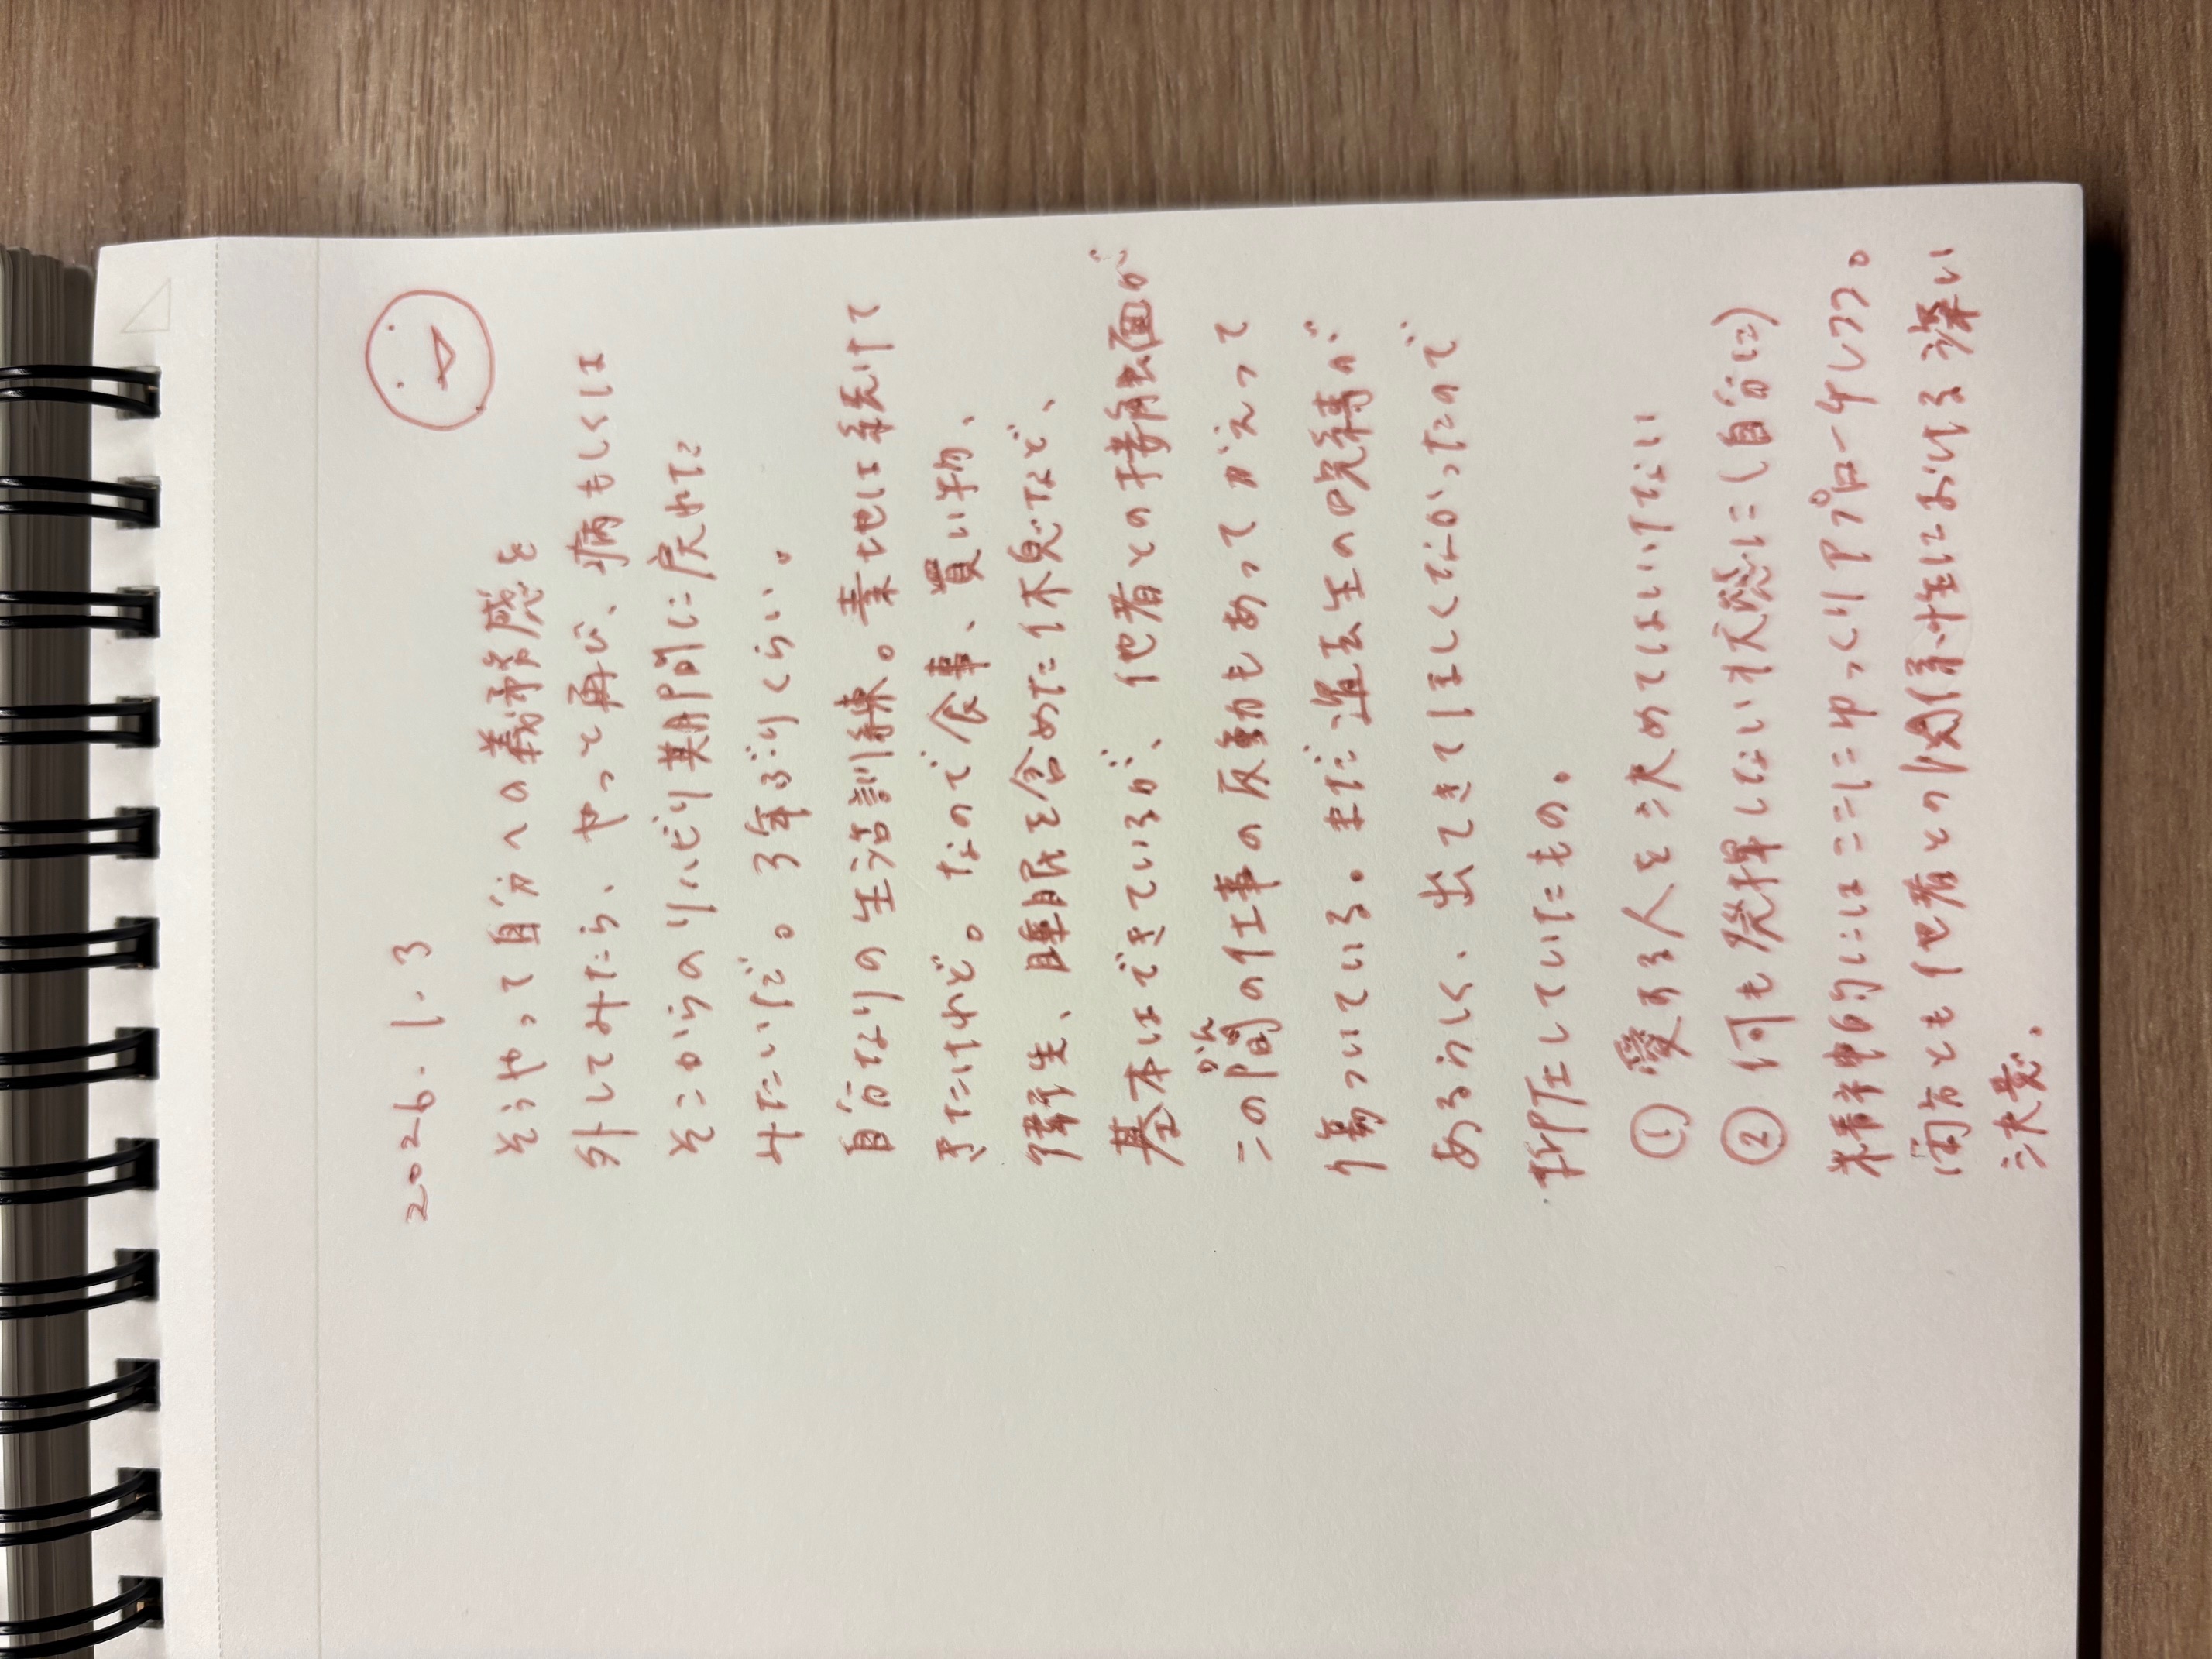 2026.1.3
そうやって自分への義務感を
外してみたら、やっと再び、病もしくは
そこからのリハビリ期間に戻れた
みたいだ。3年ぶりくらい。
自分なりの生活訓練。素地は続けて
きたけれど。なので食事、買い物、
衛生、睡眠を含めた休息など、
基本はできているが、他者との接触面が
この間の仕事の反動もあってがえって
かえ
傷ついている。まだ過去生の呪縛が
あるらしく、出てきてほしくなかったので
抑圧していたもの。
① 愛する人を決めてはいけない
② 何も発揮しない状態に(自分に)
精神的にはここにゆっくりアプローチしつつ。
両方とも他者との関係性における深い
決意.